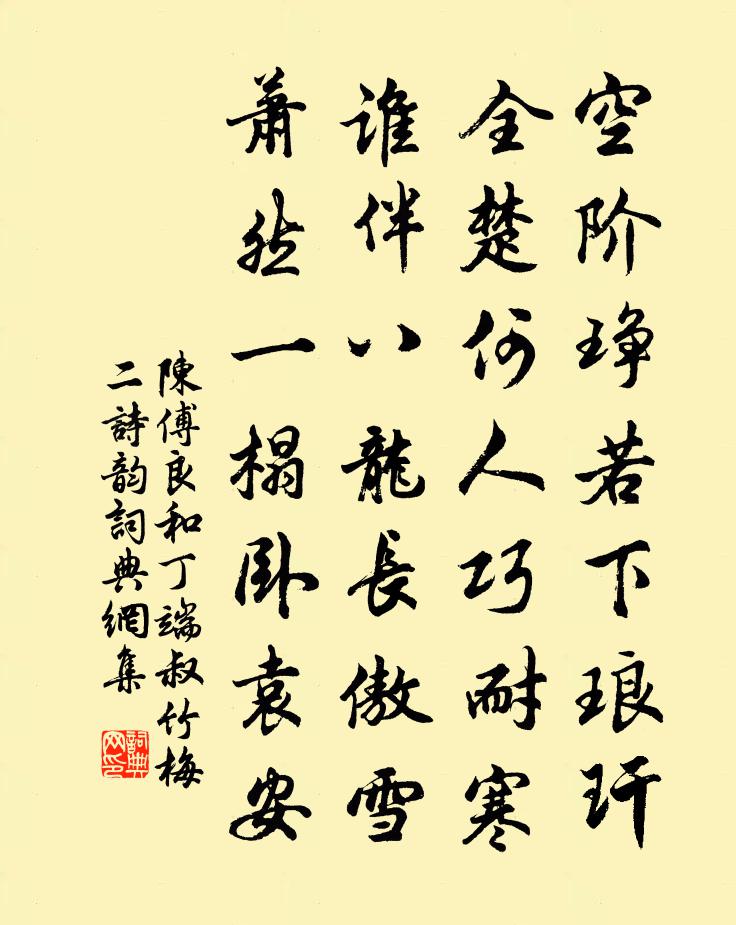 空阶琤若下琅玕
全楚何人巧耐寒
谁伴八龍長傲雪
萧然一榻卧袁安
陳傅良和丁端叔竹梅
二詩韵詞典網集
詞典
网印